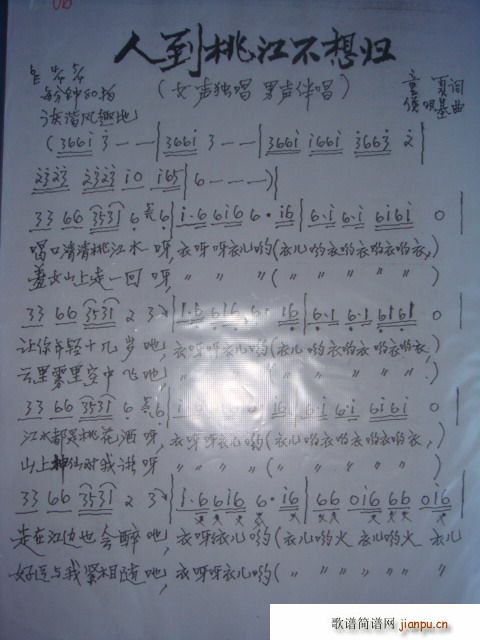 人到桃江不想归
每分钟80拍
诙谐风趣地
(女声独唱 男声伴唱)
童夏词
侯明基曲
(3661 3 - - - | 3661 3 - - - | 3661 1661 3663 2 |
2323 2323 10 165 | 6 - - - )|
33 66 3531 6 6 | 1·6 616 6· 16 | 6·1 6·1 6161 0 |
唱口清清桃江水呀,衣呀呀衣儿哟(衣儿哟衣哟衣哟衣哟衣,)
羞女山上走一回呀, 〃 〃 〃 〃 ( 〃 〃 〃 〃 〃 )
33 66 3531 2 3 | 1·6 616 6· 16 | 6·1 6·1 6161 0 |
让你年轻十几岁地,衣呀呀衣儿哟(衣儿哟衣哟衣哟衣哟衣,)
云里雾里空中飞地, 〃 〃 〃 〃 ( 〃 〃 〃 〃 〃 )
33 66 3531 6 6 | 1·6 616 6· 16 | 6·1 6·1 6161 0 |
江水都是桃花酒呀,衣呀呀衣儿哟(衣儿哟衣哟衣哟衣哟衣,)
山上神仙对我讲呀 〃 〃 〃 〃 ( 〃 〃 〃 〃 〃 )
33 66 3531 2 3 | 1·6 616 6· 16 | 66 016 66 016 |
走在江边也会醉地,衣呀衣儿哟(衣儿哟火 衣儿哟火 衣儿
好运与我紧相随地,衣呀呀衣儿哟( 〃 〃 〃 〃 〃
歌谱简谱网
jianpu.cn